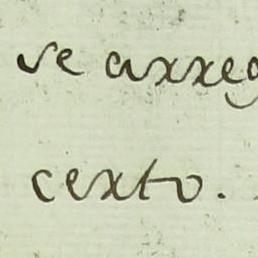 se arreg
certo.